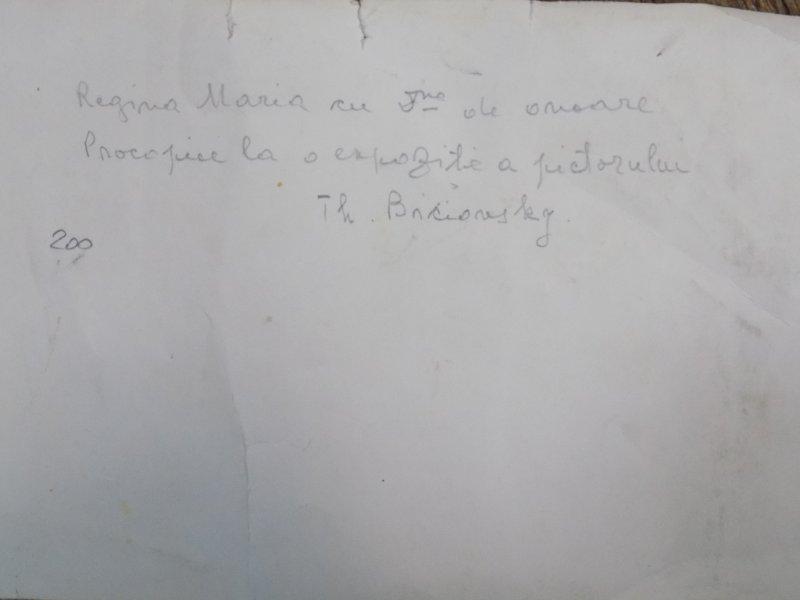 Regina Maria cu Dna de onoare
Procopiu la o expoziție a pictorului
Th.
200